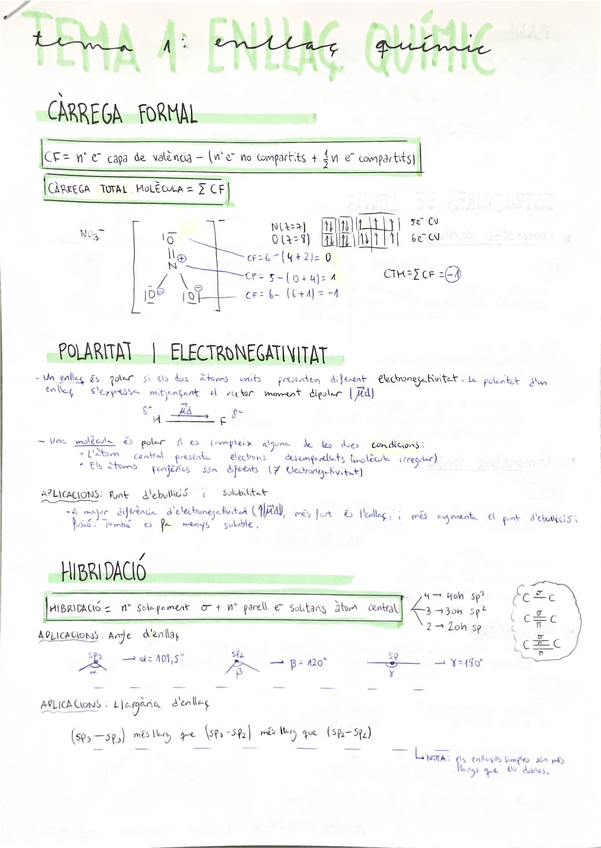 TEMA 1: ENLLAÇ QUÍMIC
tema 1: enllaç químic
CÀRREGA FORMAL
CF = nº e⁻ capa de valència - (nº e⁻ no compartits + ½ n e⁻ compartits)
CÀRREGA TOTAL MOLÈCULA = Σ CF
NO₃⁻
N(z=7) 5e⁻ CV
O(z=8) 6e⁻ CV
CF = 6 - (4+2) = 0
CF = 5 - (0+4) = 1
CF = 6 - (6+1) = -1
CTM = Σ CF = -1
POLARITAT I ELECTRONEGATIVITAT
- Un enllaç és polar si els dos àtoms units presenten diferent electronegativitat. La polaritat d'un
enllaç s'expressa mitjançant el vector moment dipolar (μd)
δ⁺ H μd F δ⁻
- Una molècula és polar si es compleix alguna de les dues condicions:
• L'àtom central presenta electrons desemparellats (molècula irregular)
• Els àtoms perifèrics són diferents (≠ electronegativitat)
APLICACIONS: Punt d'ebullició i solubilitat
- A major diferència d'electronegativitat (↑|μd|), més fort és l'enllaç, i més augmenta el punt d'ebullició i
fusió. També es fa menys soluble.
HIBRIDACIÓ
HIBRIDACIÓ = nº solapament σ + nº parell e⁻ solitaris àtom central
4 → 4oh sp³
3 → 3oh sp²
2 → 2oh sp
C σ C
C σ π C
C π σ π C
APLICACIONS: Angle d'enllaç
sp₃ α → α = 109,5°
sp₂ β → β = 120°
sp γ → γ = 180°
APLICACIONS: Llargària d'enllaç
(sp₃ - sp₃) més llarg que (sp₃ - sp₂) més llarg que (sp₂ - sp₂)
NOTA: els enllaços simples són més
llargs que els dobles.